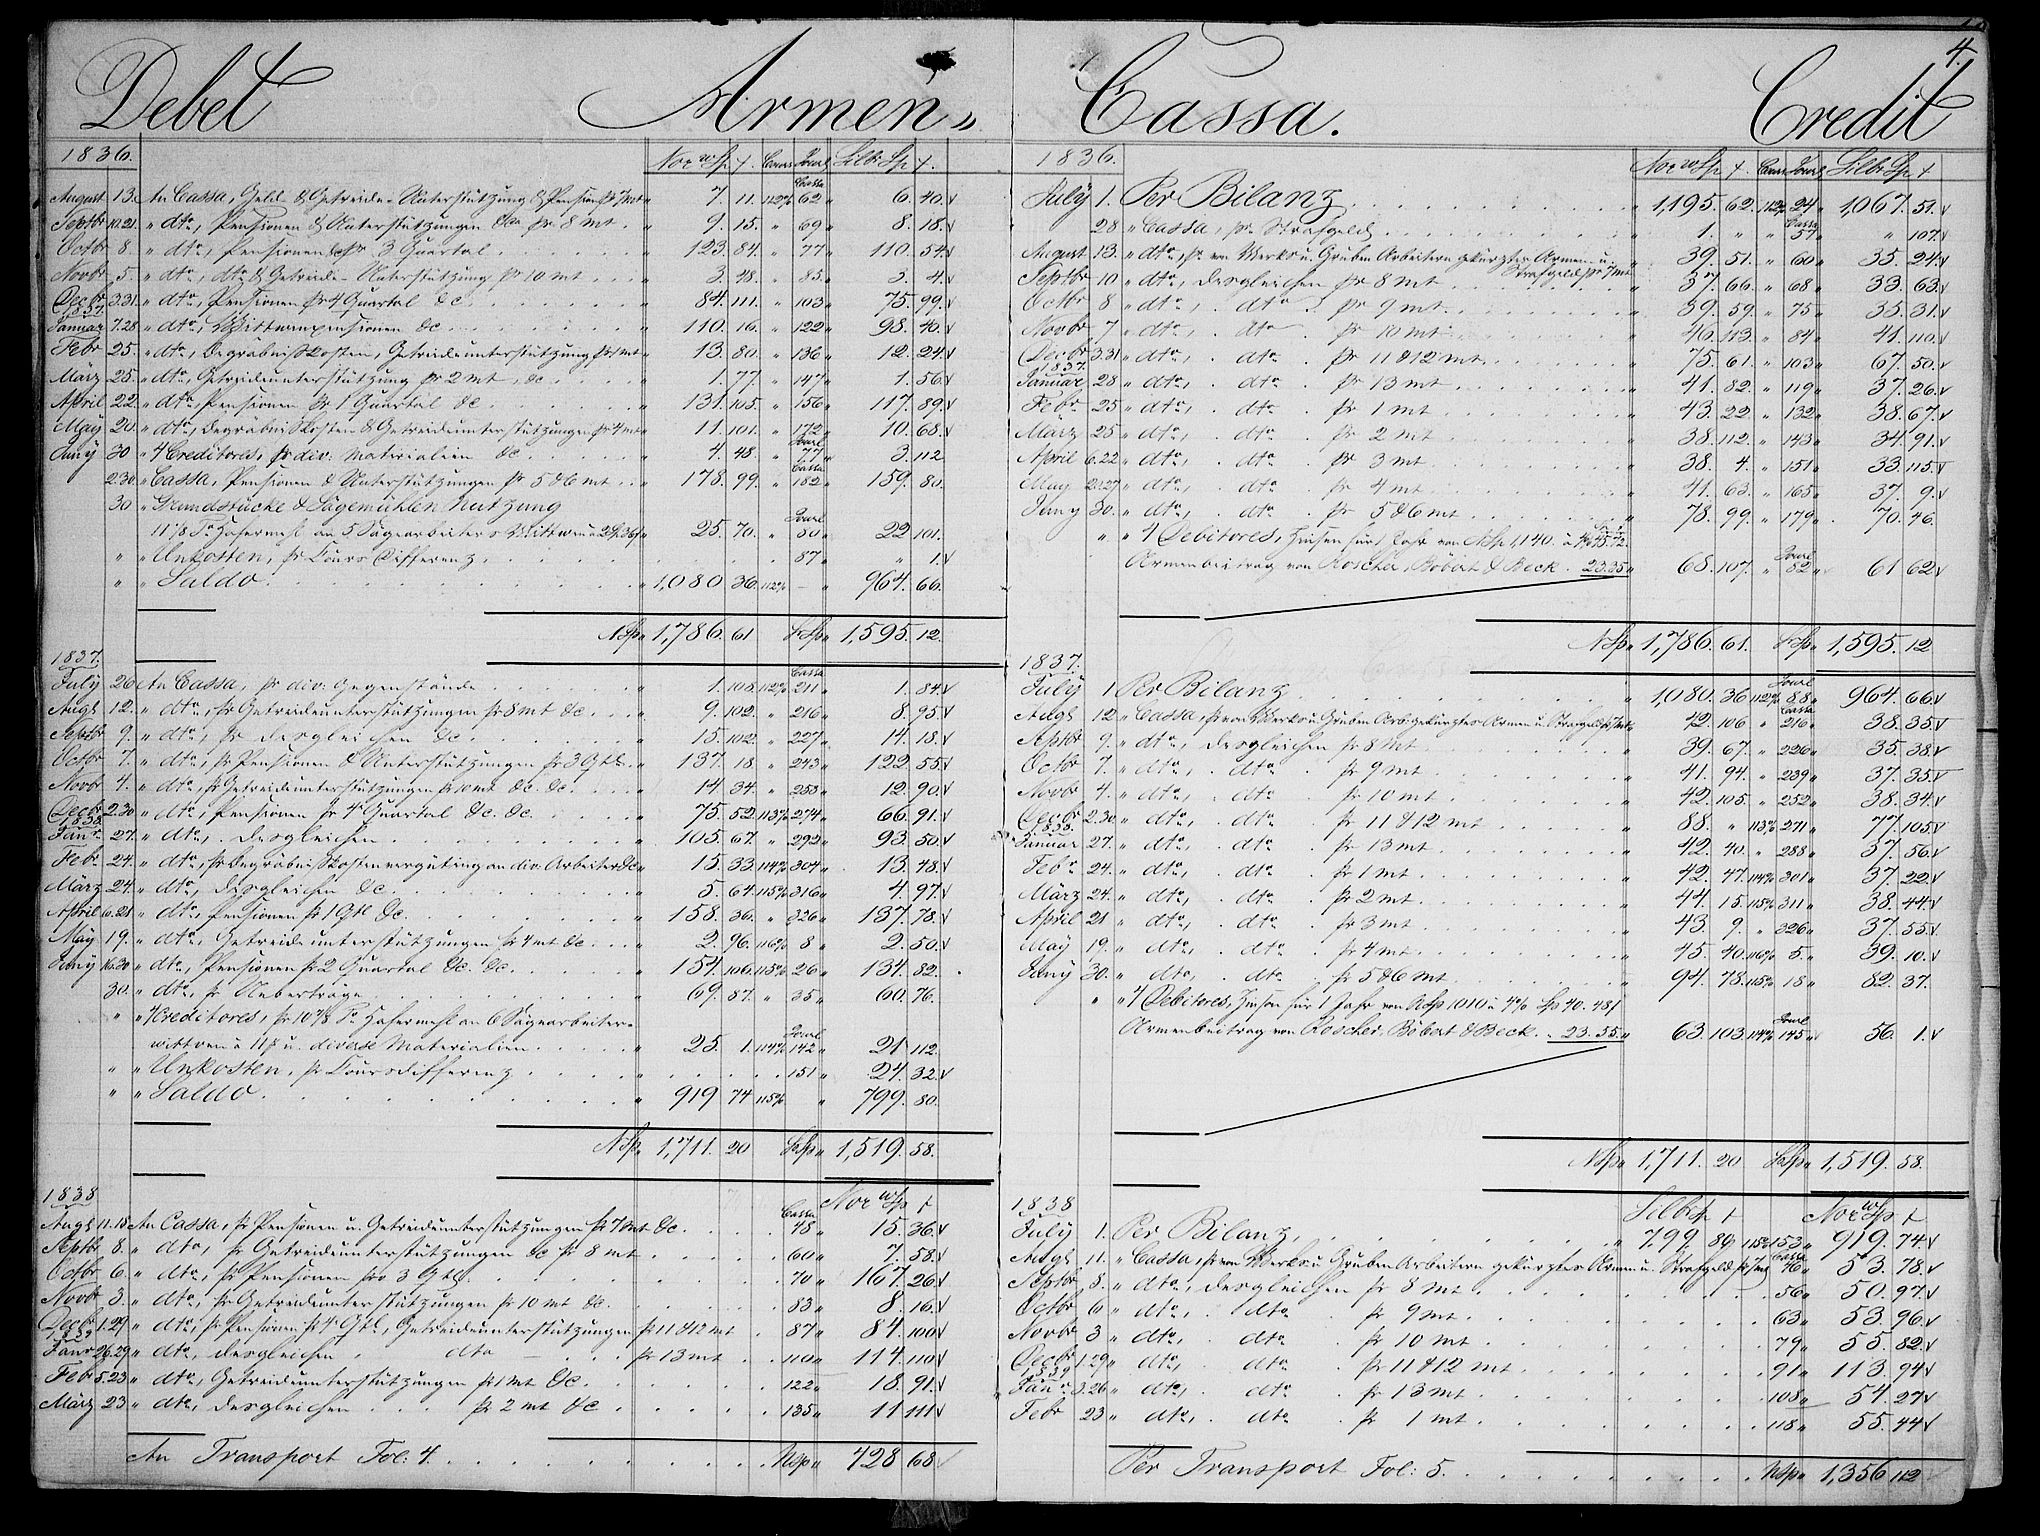 4.
Debet Armen„ Cassa. Credit
1836. Norw Sp ƒ. Cours Jourl Silb Sp ƒ.
August 13. An Cassa, Geld & Getreide-Unterstützung & Pension pr 7 mt „ 7. 11. 112% Cassa 62 „ 6. 40.
Septbr 10.21. „ dto, Pensionen & Unterstützungen &c pr 8 mt. „ 9. 15. „ 69 „ 8. 18.
Octbr 8. „ dto, Pensionen pr 3 Quartal „ 123. 84. „ 77 „ 110. 54.
Novbr 5. „ dto, dto & Getreide-Unterstützung pr 10 mt „ 3. 48. „ 85 „ 3. 4.
Decbr 3.31. „ dto, Pensionen pr 4 Quartal &c „ 84. 111. „ 103 „ 75. 99.
1837.
Januar 7.28 „ dto, Wittwenpensionen &c „ 110. 16. „ 122 „ 98. 40.
Febr 25. „ dto, Begräbnißkosten, Getreideunterstützung pr 1 mt „ 13. 80. „ 136 „ 12. 24.
März 25. „ dto, Getreideunterstützung pr 2 mt, &c „ 1. 77. „ 147 „ 1. 56.
April 22. „ dto, Pensionen pr 1 Quartal &c „ 131. 105. „ 156 „ 117. 89.
May 20. „ dto, Begräbnißkosten & Getreideunterstützungen pr 4 mt „ 11. 101. „ 172 „ 10. 68.
Juny 30 „ Creditores, pr div: Materialien &c „ 4. 48. „ Jourl 77 „ 3. 112.
2.30. „ Cassa, Pensionen & Unterstützungen pr 5 & 6 mt „ 178. 99. „ Cassa 182 „ 159. 80.
30 „ Grundstücke & Sägemühlen Nutzung
11⅛ Tn Hafermehl an 5 Sägearbeiters Wittwen „ 25. 70. „ Jourl 80 „ 22. 101.
„ „ Unkosten, pr Cours Differenz 87 „ „ 1.
„ „ Saldo „ 1,080. 36. 112% „ 964. 66.
NSp „ 1,786. 61 SSp „ 1,595. 12.
1837.
July 26 An Cassa, pr div: Gegenstände „ 1. 108. 112% Cassa 211 „ 1. 84.
Augt 12. „ dto, pr Getreideunterstützungen pr 8 mt &c „ 9. 102. „ 216 „ 8. 95.
Septbr 9. „ dto, pr desgleichen &c. „ 15. 102. „ 227 „ 14. 18.
Octbr 7. „ dto, pr Pensionen & Unterstützungen pr 3 Qtl „ 137. 18. „ 243 „ 122. 55.
Novbr 4. „ dto, pr Getreideunterstützungen pr 10 mt &c. &c. „ 14. 34. „ 253 „ 12. 90.
Decbr 2.30 „ dto, Pensionen pr 4 Quartal &c. &c. „ 75. 52. 113% 274 „ 66. 91.
1838.
Januar 27. „ dto, desgleichen „ 105. 67. „ 292 „ 93. 50.
Febr 24. „ dto, pr Begräbnißkostenvergütung an div: Arbeiter &c „ 15. 33. 114% 304 „ 13. 48.
März 24. „ dto, desgleichen &c. „ 5. 64. 115% 316 „ 4. 97.
April 6.21 „ dto, Pensionen pr 1 Qtl &c. „ 158. 36. „ 326 „ 137. 78.
May 19. „ dto, Getreideunterstützungen pr 4 mt &c. „ 2. 96. 116% 8 „ 2. 50.
Juny 16.30 „ dto, Pensionen pr 2 Quartal &c. &c. „ 154. 106. 115% 26 „ 134. 82.
30. „ dto, pr Ueberträge „ 69. 87. „ 35 „ 60. 76.
„ „ Creditores, pr 10⅞ Tn Hafermehl an 6 Sägearbeiter-
wittwen à 11ƒ u. diverse Materialien „ 25. 1. 114% Jourl 142 „ 21. 112.
„ „ Unkosten, pr Coursdifferenz 151 „ 24. 32.
„ „ Saldo „ 919 74 115% „ 799. 80.
NSp „ 1,711. 20 SSp „ 1,519. 58.
1838 Norw Sp ƒ
Augt 11.18 An Cassa, pr Pensionen u. Getreideunterstützungen pr 7 mt &c. Cassa 48 „ 15. 36.
Septbr 8. „ dto, pr Getreideunterstützungen &c pr 8 mt 60 „ 7. 58.
Octbr 6. „ dto, pr Pensionen pro 3 Qtl. 70 „ 167. 26.
Novbr 3. „ dto, pr Getreideunterstützungen pr 10 mt &c. 83 „ 8. 16.
Decbr 1.29 „ dto, pr Pensionen pr 4 Qtl, Getreideunterstützungen pr 11 & 12 mt 87 „ 84. 100.
1839
Januar 26.29 „ dto, desgleichen dto pr 13 mt 110 „ 114. 110.
Febr 5.23 „ dto, Getreideunterstützungen pr 1 mt &c. 122 „ 18. 91.
März 23 „ dto, desgleichen pr 2 mt &c 135 „ 11 111.
An Transport Fol: 4. NSp „ 428 68
1836. Norw Sp ƒ Cours Jourl Silb Sp ƒ
July 1. Per Bilanz „ 1,195. 62. 112% 24 „ 1,067. 51.
28 „ Cassa, pr Strafgeld „ 1. „ „ Cassa 57 „ „ 107.
August 13. „ dto, pr von Werks u. Gruben Arbeitern gekürzter Armen- u. Strafgeld pr 7 mt „ 39. 51. „ 60 „ 35. 24.
Septbr 10 „ dto, desgleichen pr 8 mt „ 37. 66. „ 68 „ 33. 63.
Octbr 8 „ dto, dto pr 9 mt „ 39. 59. „ 75 „ 35. 31.
Novbr 7 „ dto, dto pr 10 mt „ 46. 113. „ 84 „ 41. 110.
Decbr 3.31 „ dto, dto pr 11 & 12 mt „ 75. 61. „ 103 „ 67. 50.
1837.
Januar 28 „ dto, dto pr 13 mt „ 41. 82. „ 119 „ 37. 26.
Febr 25 „ dto, dto pr 1 mt „ 43. 22. „ 132 „ 38. 67.
März 25 „ dto, dto pr 2 mt „ 38. 112. „ 143 „ 34. 91.
April 6.22 „ dto, dto pr 3 mt „ 38. 4. „ 151 „ 33. 115.
May 20.27 „ dto, dto pr 4 mt „ 41. 63. „ 165 „ 37. 9.
Juny 30. „ dto, dto pr 5 & 6 mt „ 78. 99. „ 179 „ 70. 46.
„ „ Debitores, Zinsen für 1 Jahr von NSp 1,140. à 4% 45.72.
Armenbeitrag von Roscher, Böbert & Beck. 23.35 „ 68. 107. „ Jourl 82 „ 61 62
NSp „ 1,786. 61. SSp „ 1,595. 12
1837.
July 1 Per Bilanz „ 1,080. 36 112% Jourl 88 „ 964. 66.
Augt 12. „ Cassa, pr von Werks u. Gruben Arb: gekürztes Armen u. Strafgeld pr 7 mt „ 42. 106 „ Cassa 216 „ 38. 35.
Septbr 9. „ dto, desgleichen pr 8 mt „ 39. 67. „ 226 „ 35. 38.
Octbr 7. „ dto, dto pr 9 mt „ 41. 94. „ 239 „ 37. 35.
Novbr 4. „ dto, dto pr 10 mt „ 42. 105. „ 252 „ 38. 34.
Decbr 2.30. „ dto, dto pr 11 & 12 mt „ 88. „ 113% 271 „ 77. 105.
1838.
Januar 27. „ dto, dto pr 13 mt „ 42. 40. „ 288 „ 37. 56.
Febr 24. „ dto, dto pr 1 mt „ 42. 47. 114% 301 „ 37. 22.
März 24. „ dto, dto pr 2 mt „ 44. 15. 115% 311 „ 38. 44.
April 21 „ dto, dto pr 3 mt „ 43. 9. „ 326 „ 37. 55.
May 19. „ dto, dto pr 4 mt „ 45. 40. 116% 5. „ 39. 10.
Juny 30. „ dto, dto pr 5 & 6 mt „ 94. 78. 115% 18 „ 82. 37.
„ „ Debitores, Zinsen für 1 Jahr von NSp 1010 à 4% Sp 40. 48ƒ
Armenbeitrag von Roscher, Böbert & Beck. „ 23.55. „ 63. 103. 114% Jourl 145 „ 56. 1.
NSp „ 1,711. 20 SSp „ 1,519. 58.
1838 Silb Sp ƒ Norw Sp ƒ
July 1. Per Bilanz, „ 799 80 115% 153 „ 919. 74.
Augt 11. „ Cassa, pr von Werks u Gruben Arbeitern gekürztes Armen u. Strafgeld pr 7 mt Cassa 46 „ 53. 78.
Septbr 8. „ dto, desgleichen pr 8 mt 56 „ 50. 97.
Octbr 6 „ dto, dto pr 9 mt 63 „ 53. 96.
Novbr 3 „ dto, dto pr 10 mt 79 „ 55. 82.
Decbr 1.29 „ dto, dto pr 11 & 12 mt 91 „ 113. 94.
1839
Januar 3.26 „ dto, dto pr 13 mt 108 „ 54. 27.
Febr 23 „ dto, dto pr 1 mt 118 „ 55. 44.
Per Transport Fol: 5. NSp „ 1,356 112